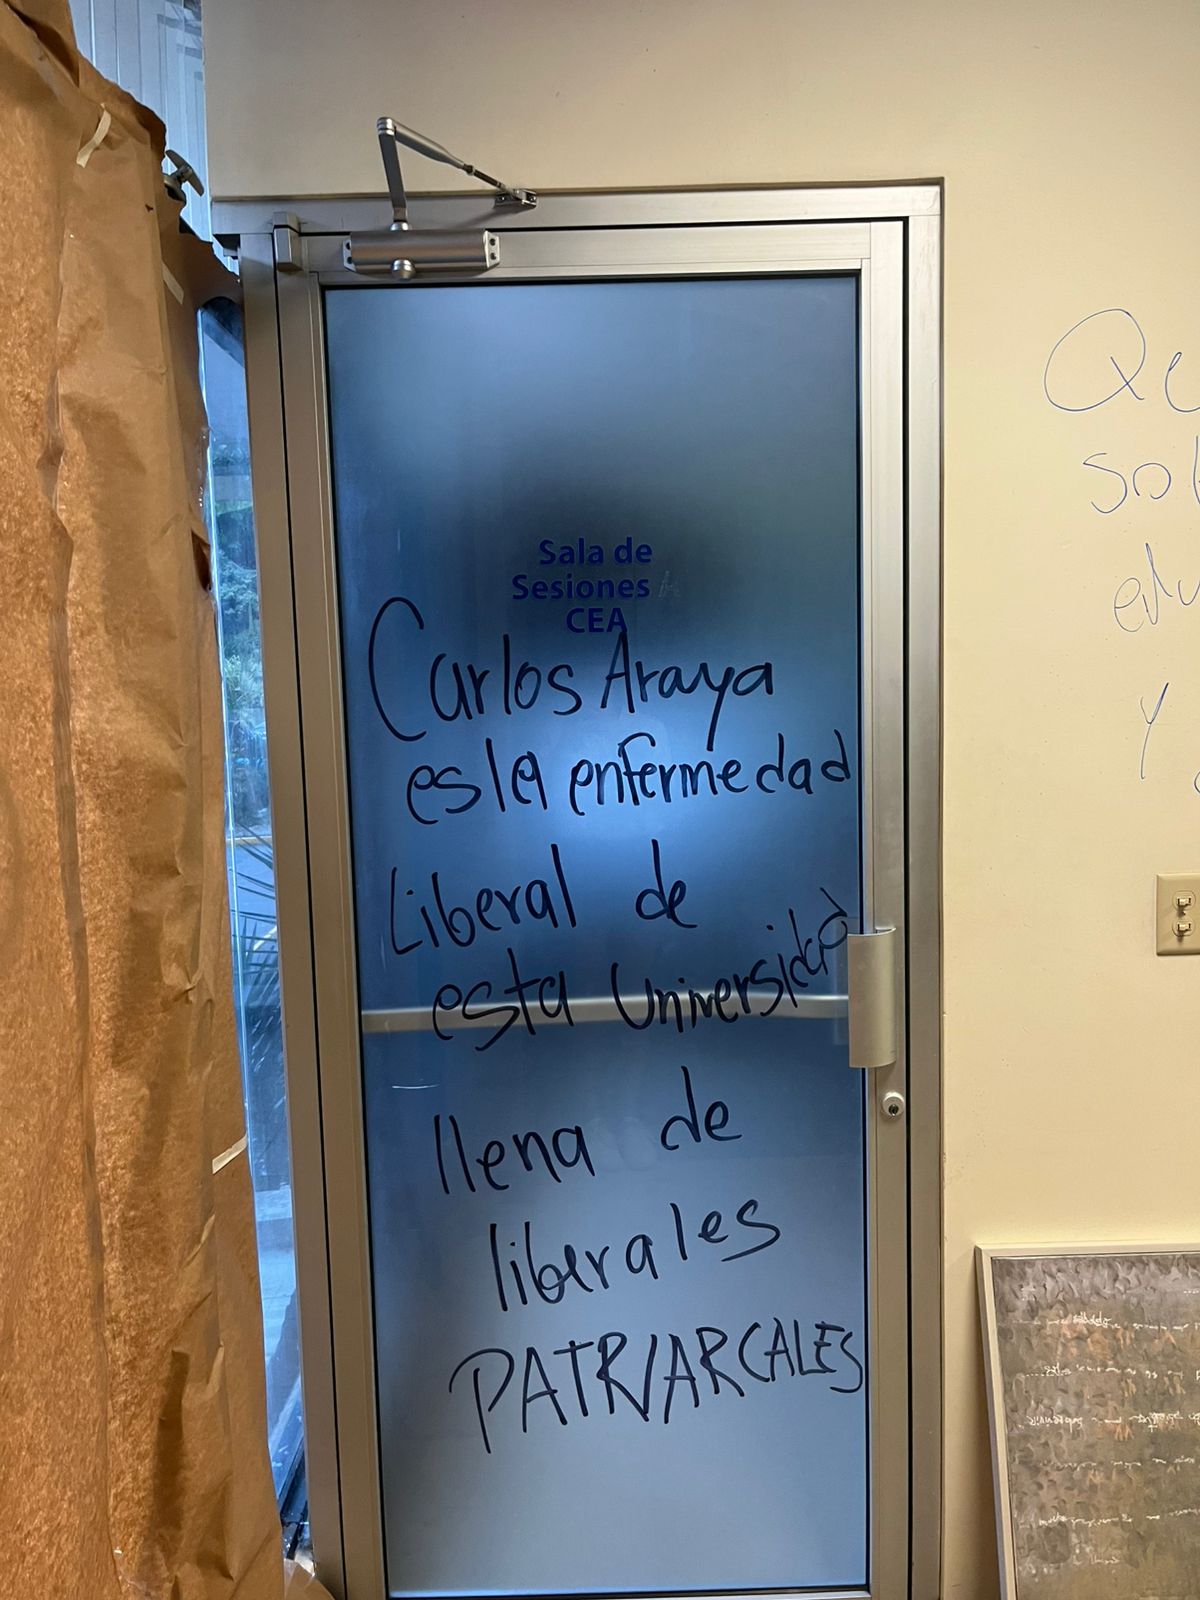 Sala de
Sesiones
CEA
Carlos Araya
es la enfermedad
Liberal de
esta Universidad
llena de
liberales
PATRIARCALES
Y